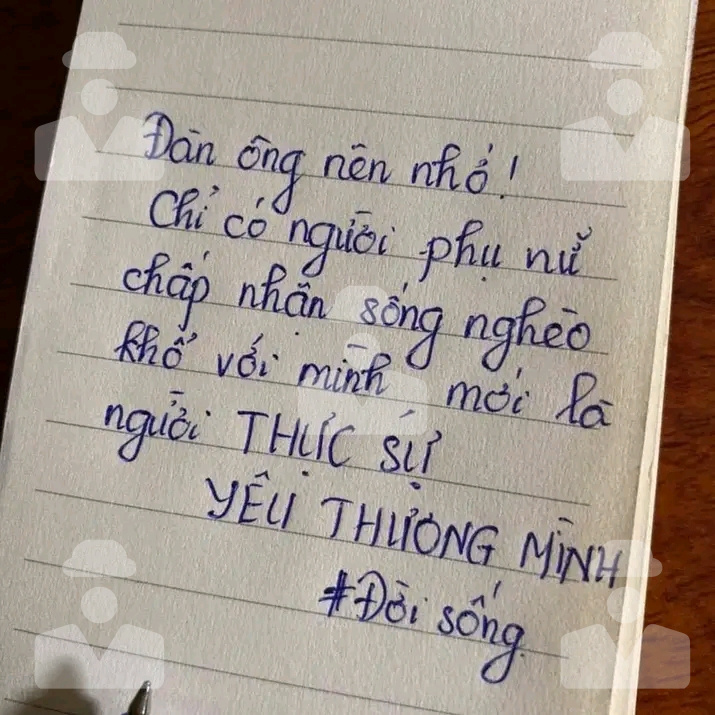 Đàn ông nên nhớ!
Chỉ có người phụ nữ
chấp nhận sống nghèo
khổ với mình mới là
người THỰC SỰ
YÊU THƯƠNG MÌNH
#Đời sống